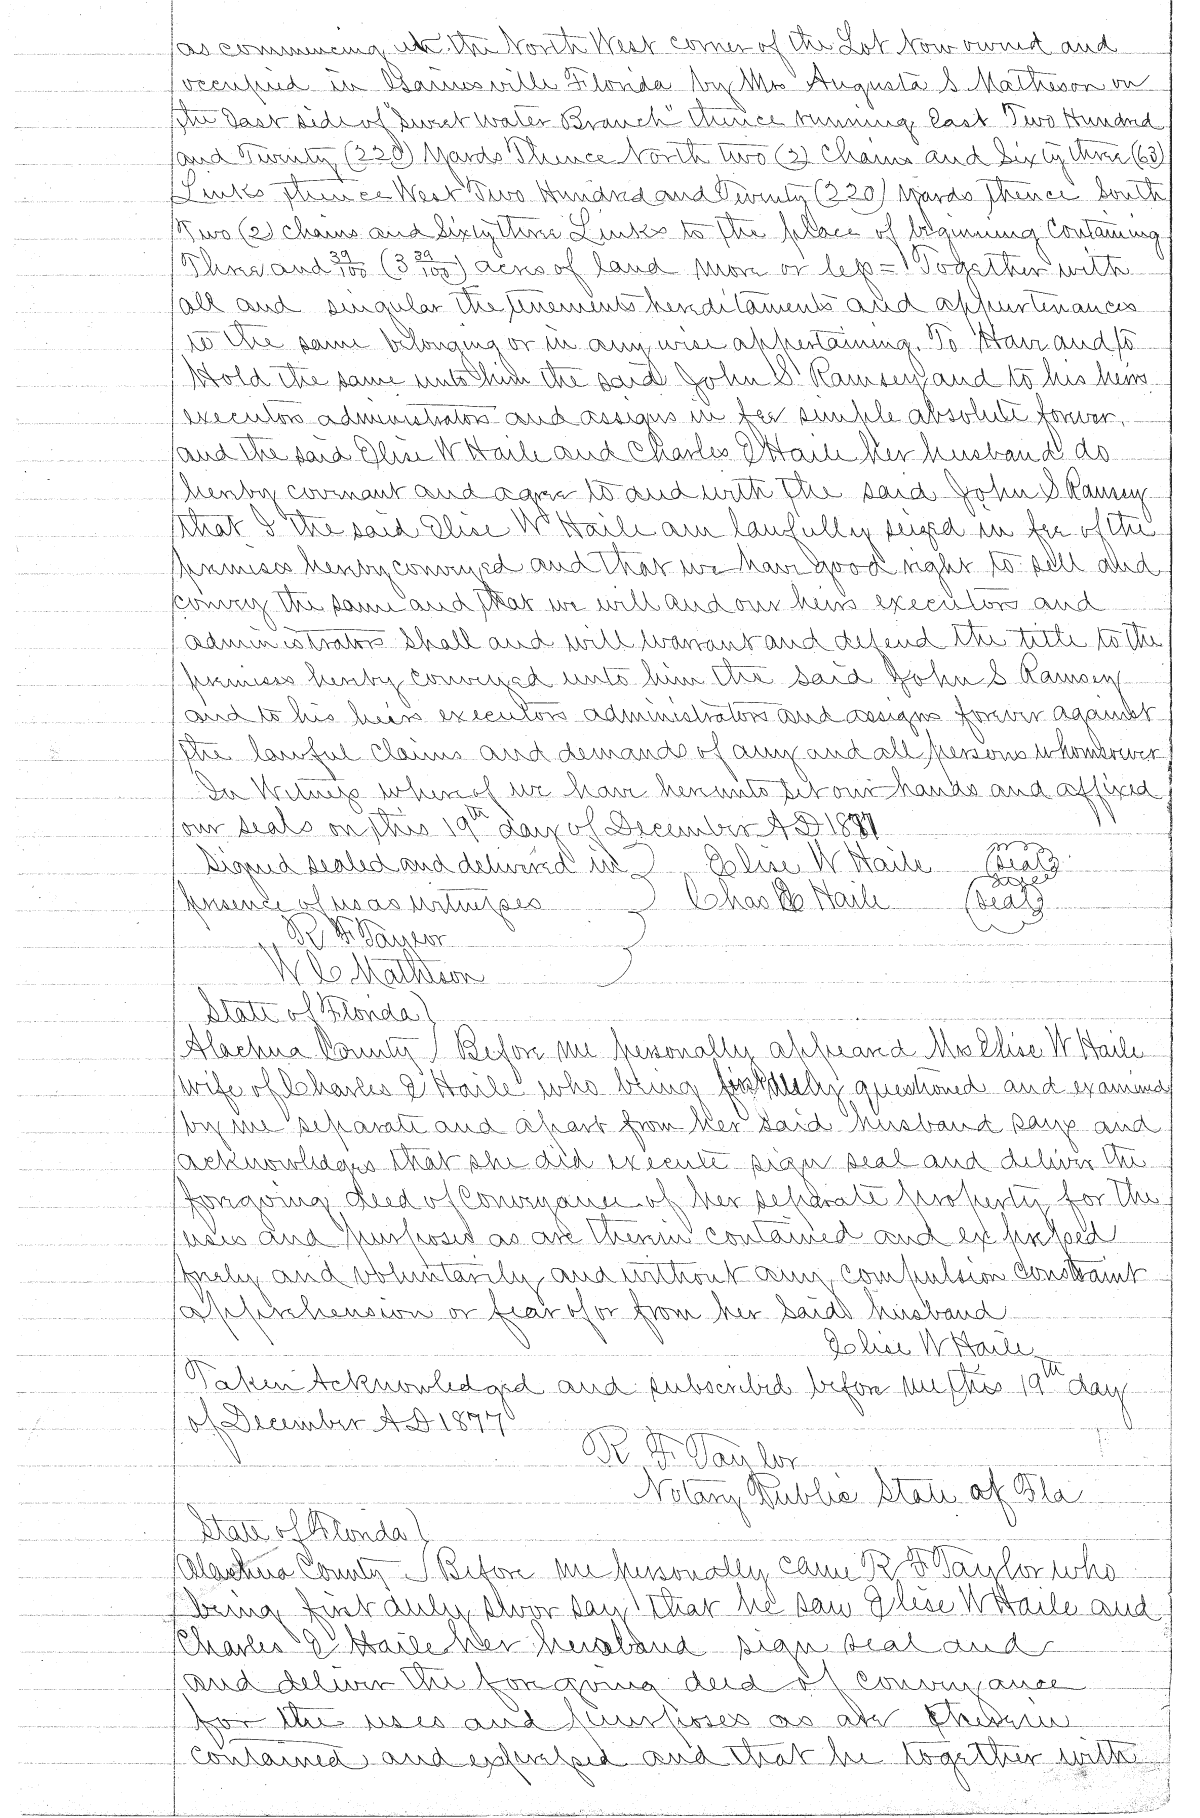 as commencing at the North West corner of the Lot Now owned and
occupied in Gainesville Florida by Mrs Augusta S Matheson on
the East side of "Sweet Water Branch" thence running East Two Hundred
and Twenty (220) Yards Thence North two (2) Chains and Sixty three (63)
Links thence West Two Hundred and Twenty (220) Yards Thence South
Two (2) chains and Sixty three Links to the place of beginning Containing
Three and 39/100 (3 39/100) acres of land more or less = Together with
all and singular the tenements hereditaments and appurtenances
to the same belonging or in any wise appertaining. To Have and to
Hold the same unto him the said John S Ramsey and to his heirs
executors administrators and assigns in fee simple absolute forever.
and the said Elise W Haile and Charles E Haile her husband do
hereby covenant and agree to and with the said John S Ramsey
that I the said Elise W Haile am lawfully seized in fee of the
premises hereby conveyed and that we have good right to sell and
convey the same and that we will and our heirs executors and
administrators shall and will warrant and defend the title to the
premises hereby conveyed unto him the said John S Ramsey
and to his heirs executors administrators and assigns forever against
the lawful claims and demands of any and all persons whomsoever
In Witness where of we have hereunto set our hands and affixed
our seals on this 19th day of December AD 1877
Signed sealed and delivered in Elise W Haile (Seal)
presence of us as witnesses Chas E Haile (Seal)
R F Taylor
W C Matheson
State of Florida
Alachua County Before me personally appeared Mrs Elise W Haile
wife of Charles E Haile who being first duly questioned and examined
by me separate and apart from her said husband says and
acknowledges that she did execute sign seal and deliver the
foregoing deed of Conveyance of her separate property for the
uses and purposes as are therein contained and expressed
freely and voluntarily and without any compulsion constraint
apprehension or fear of or from her said husband
Elise W Haile
Taken Acknowledged and subscribed before me this 19th day
of December AD 1877
R F Taylor
Notary Public State of Fla
State of Florida
Alachua County Before me personally came R F Taylor who
being first duly swor say that he saw Elise W Haile and
Charles E Haile her husband sign seal and
and deliver the foregoing deed of conveyance
for the uses and purposes as are therein
contained and expressed and that he together with